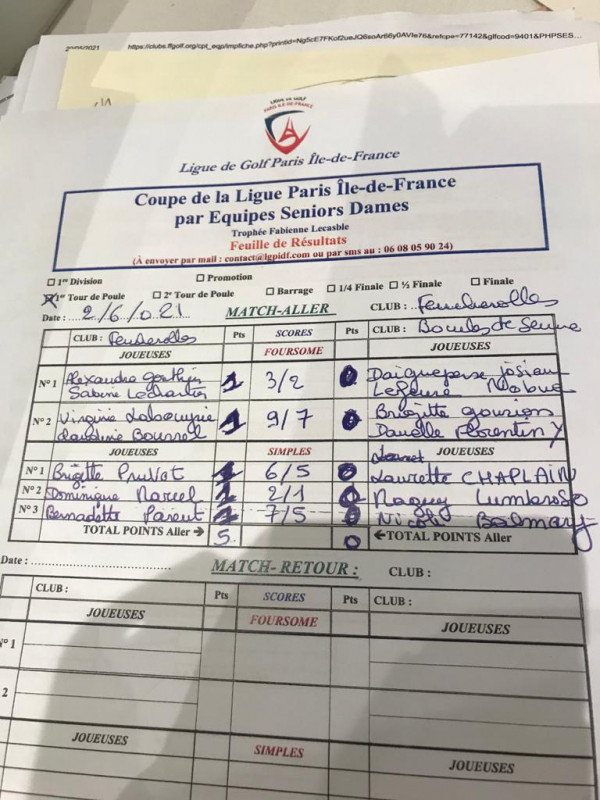 20/05/2021 https://clubs.ffgolf.org/cpt_eqp/impfiche.php?printid=Ng5cE7FKof2ueJQ6soAr66y0AVIe76&refcpe=77142&glfcod=9401&PHPSES...
LIGUE DE GOLF
PARIS ILE-DE-FRANCE
Ligue de Golf Paris Île-de-France
Coupe de la Ligue Paris Île-de-France
par Equipes Seniors Dames
Trophée Fabienne Lecasble
Feuille de Résultats
(À envoyer par mail : contact@lgpidf.com ou par sms au : 06 08 05 90 24)
☐ 1re Division ☐ Promotion
☒ 1er Tour de Poule ☐ 2e Tour de Poule ☐ Barrage ☐ 1/4 Finale ☐ ½ Finale ☐ Finale
Date : 2/6/2021 MATCH-ALLER CLUB : Feucherolles
CLUB : Feucherolles Pts SCORES Pts CLUB : Boucles de Seine
JOUEUSES FOURSOME JOUEUSES
N° 1 Alexandra Gonthier 1 3/2 0 Daigueperse Josiane
Sabine
N° 2 Virginie 1 9/7 0 Brigitte
Bournel Danielle Florentiny
JOUEUSES SIMPLES JOUEUSES
N° 1 Brigitte Pruvot 1 6/5 0 Laurette CHAPLAIN
N° 2 Dominique Marcel 1 2/1 0 Maguy Lumbroso
N° 3 Bernadette Parent 1 7/5 0 Nicole Balmary
TOTAL POINTS Aller → 5 0 ← TOTAL POINTS Aller
Date : MATCH- RETOUR : CLUB :
CLUB : Pts SCORES Pts CLUB :
JOUEUSES FOURSOME JOUEUSES
N° 1
2
JOUEUSES SIMPLES JOUEUSES